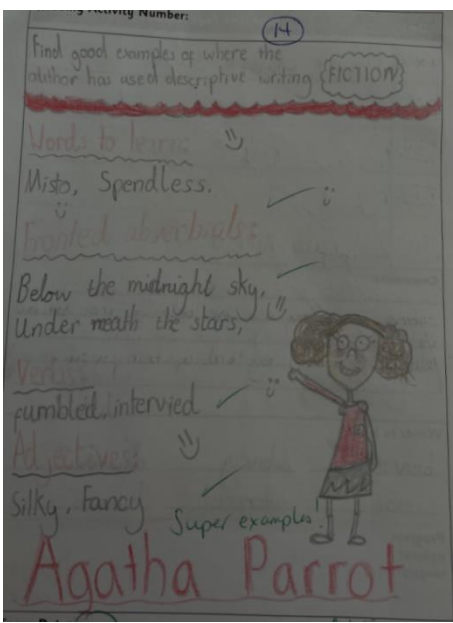 Activity Number:
14
Find good examples of where the
author has used descriptive writing
FICTION
Words to learn:
Misto, Spendless.
Fronted abverbials:
Below the midnight sky,
Under neath the stars,
Verbs:
fumbled, intervied
Adjectives:
Silky, Fancy
Super examples!
Agatha Parrot